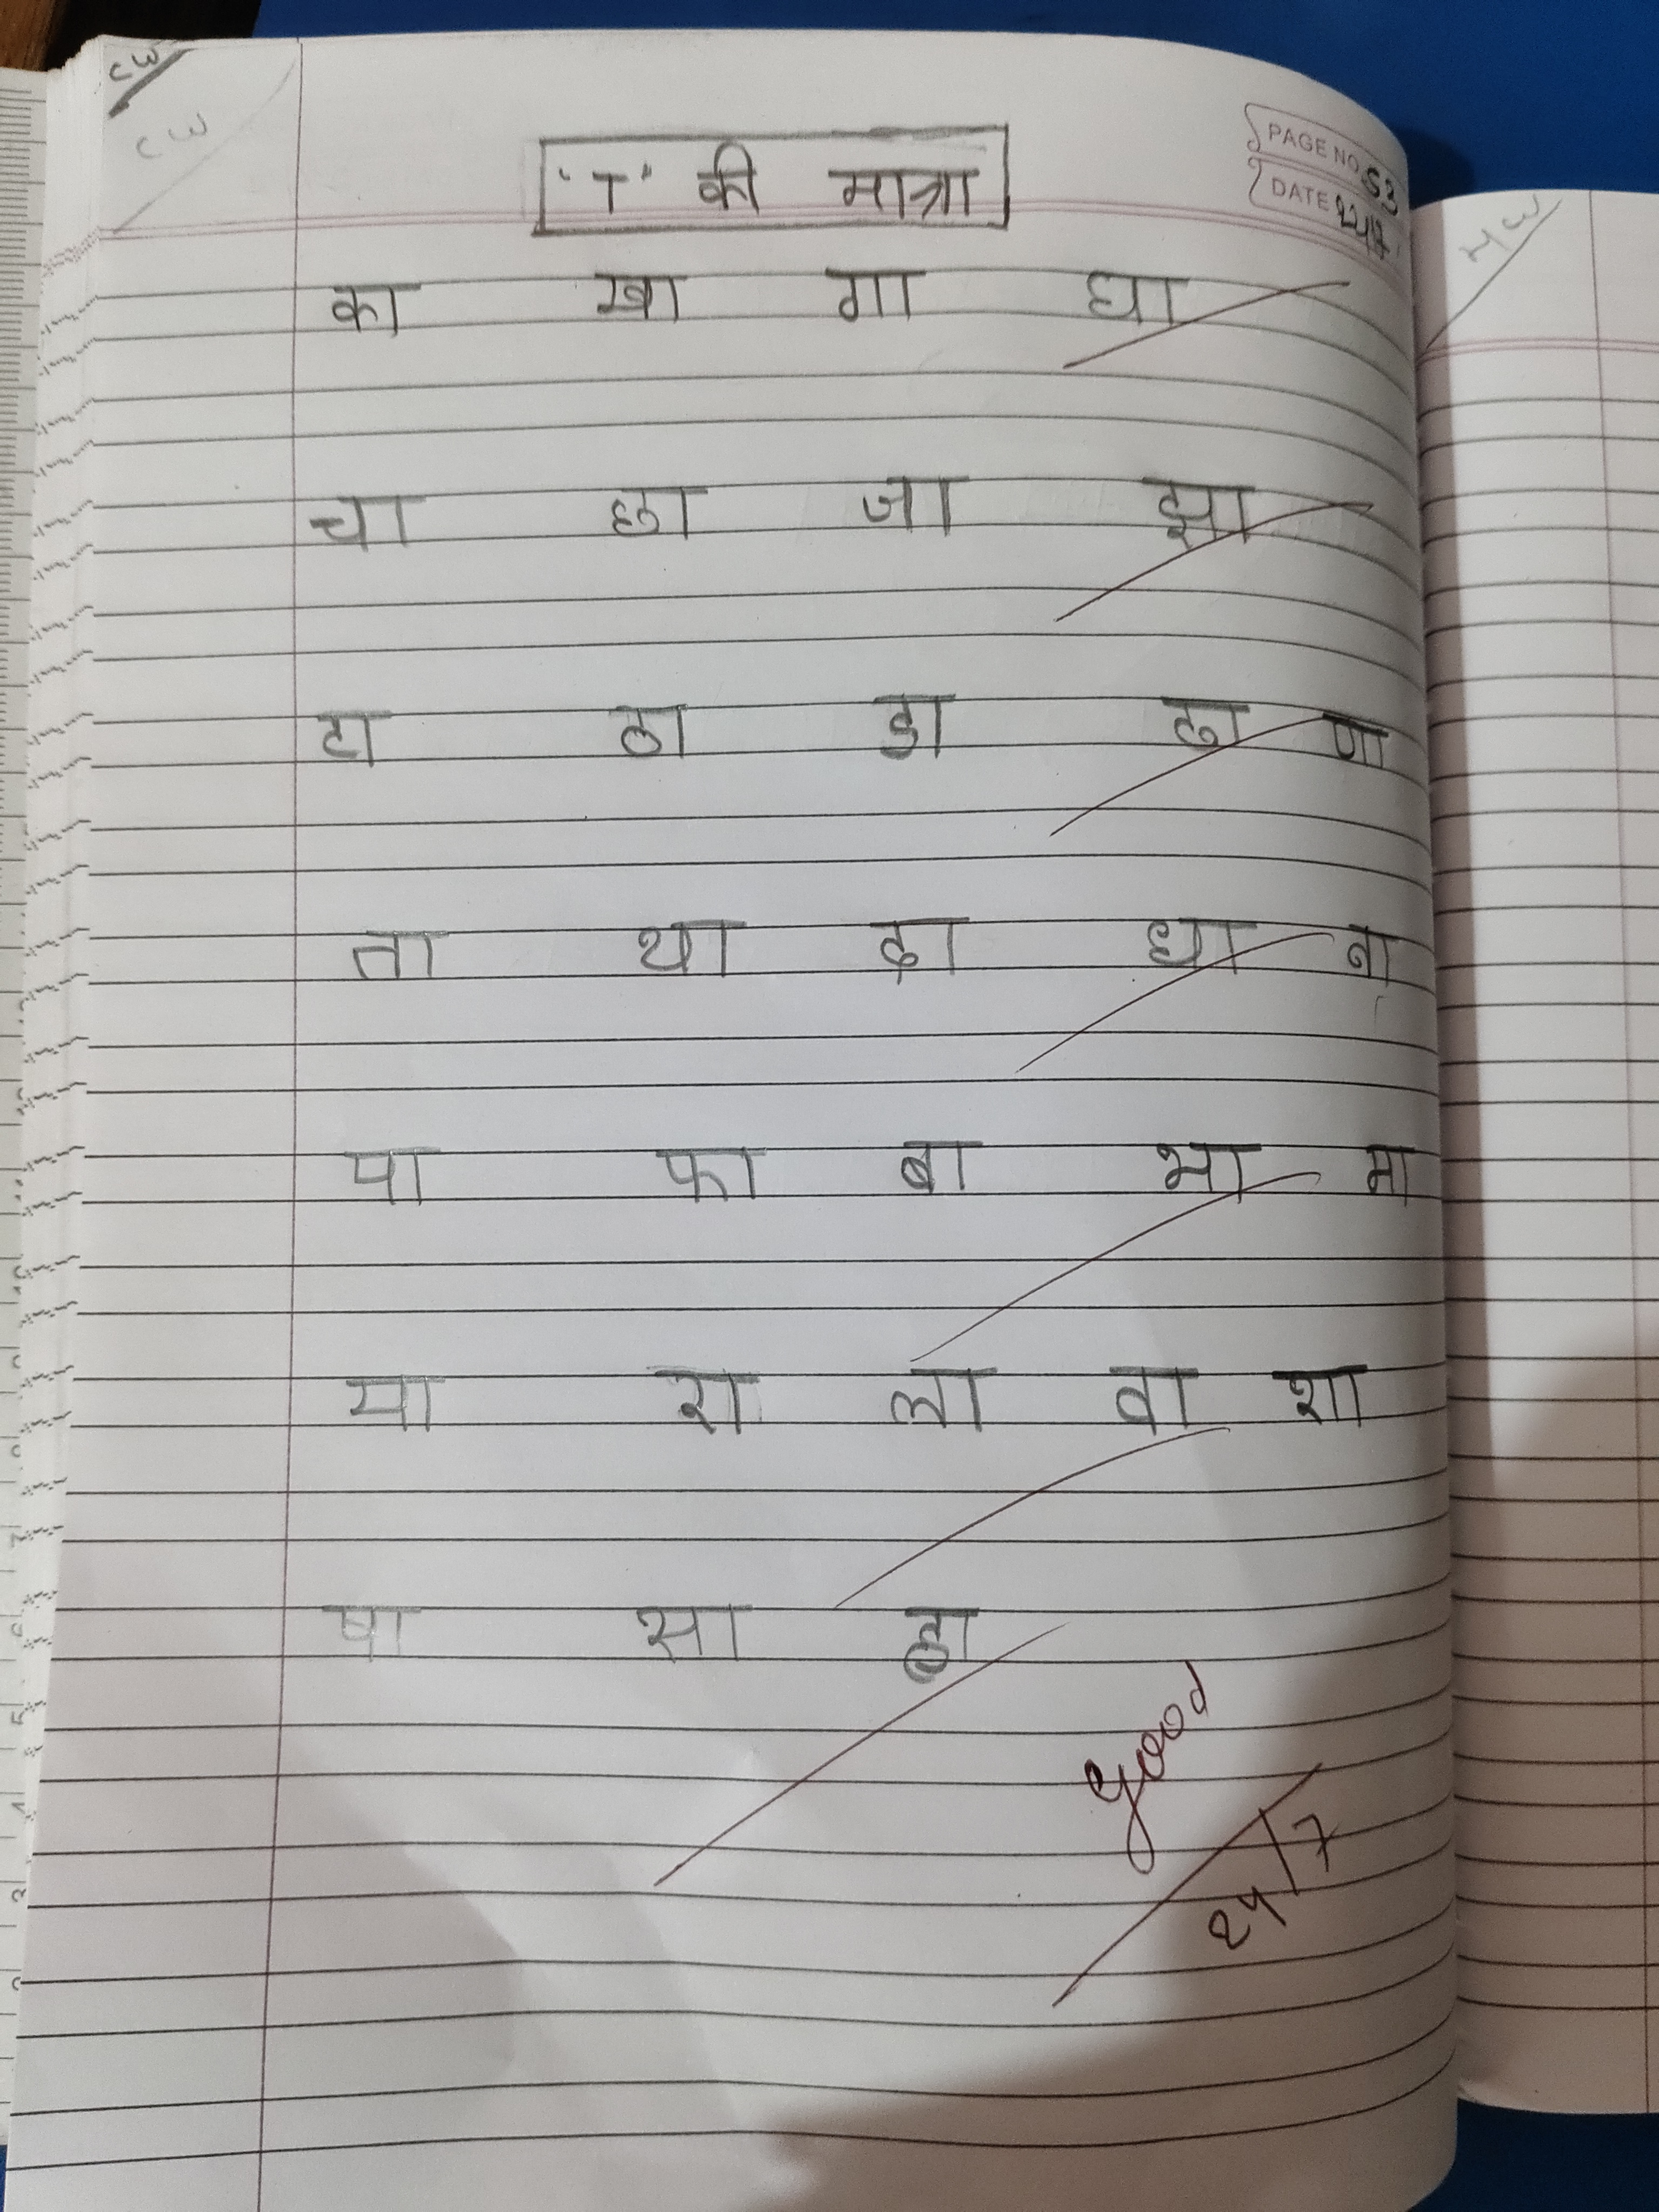 CW
CW
'ा' की मात्रा
PAGE NO. 53
DATE 24/7
का खा गा घा
चा छा जा झा
टा ठा डा ढा णा
ता था दा धा ना
पा फा बा भा मा
या रा ला वा शा
षा सा हा
Good
24/7
HW